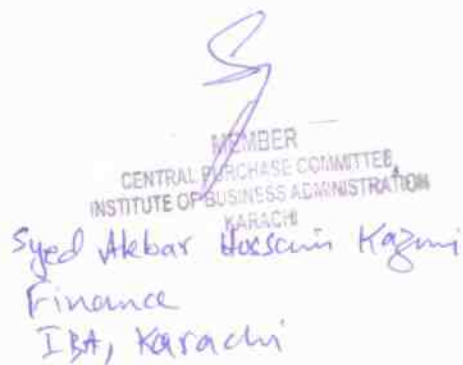 MEMBER
CENTRAL PURCHASE COMMITTEE,
INSTITUTE OF BUSINESS ADMINISTRATION
KARACHI
Syed Akbar Hussain Kazmi
Finance
IBA, Karachi